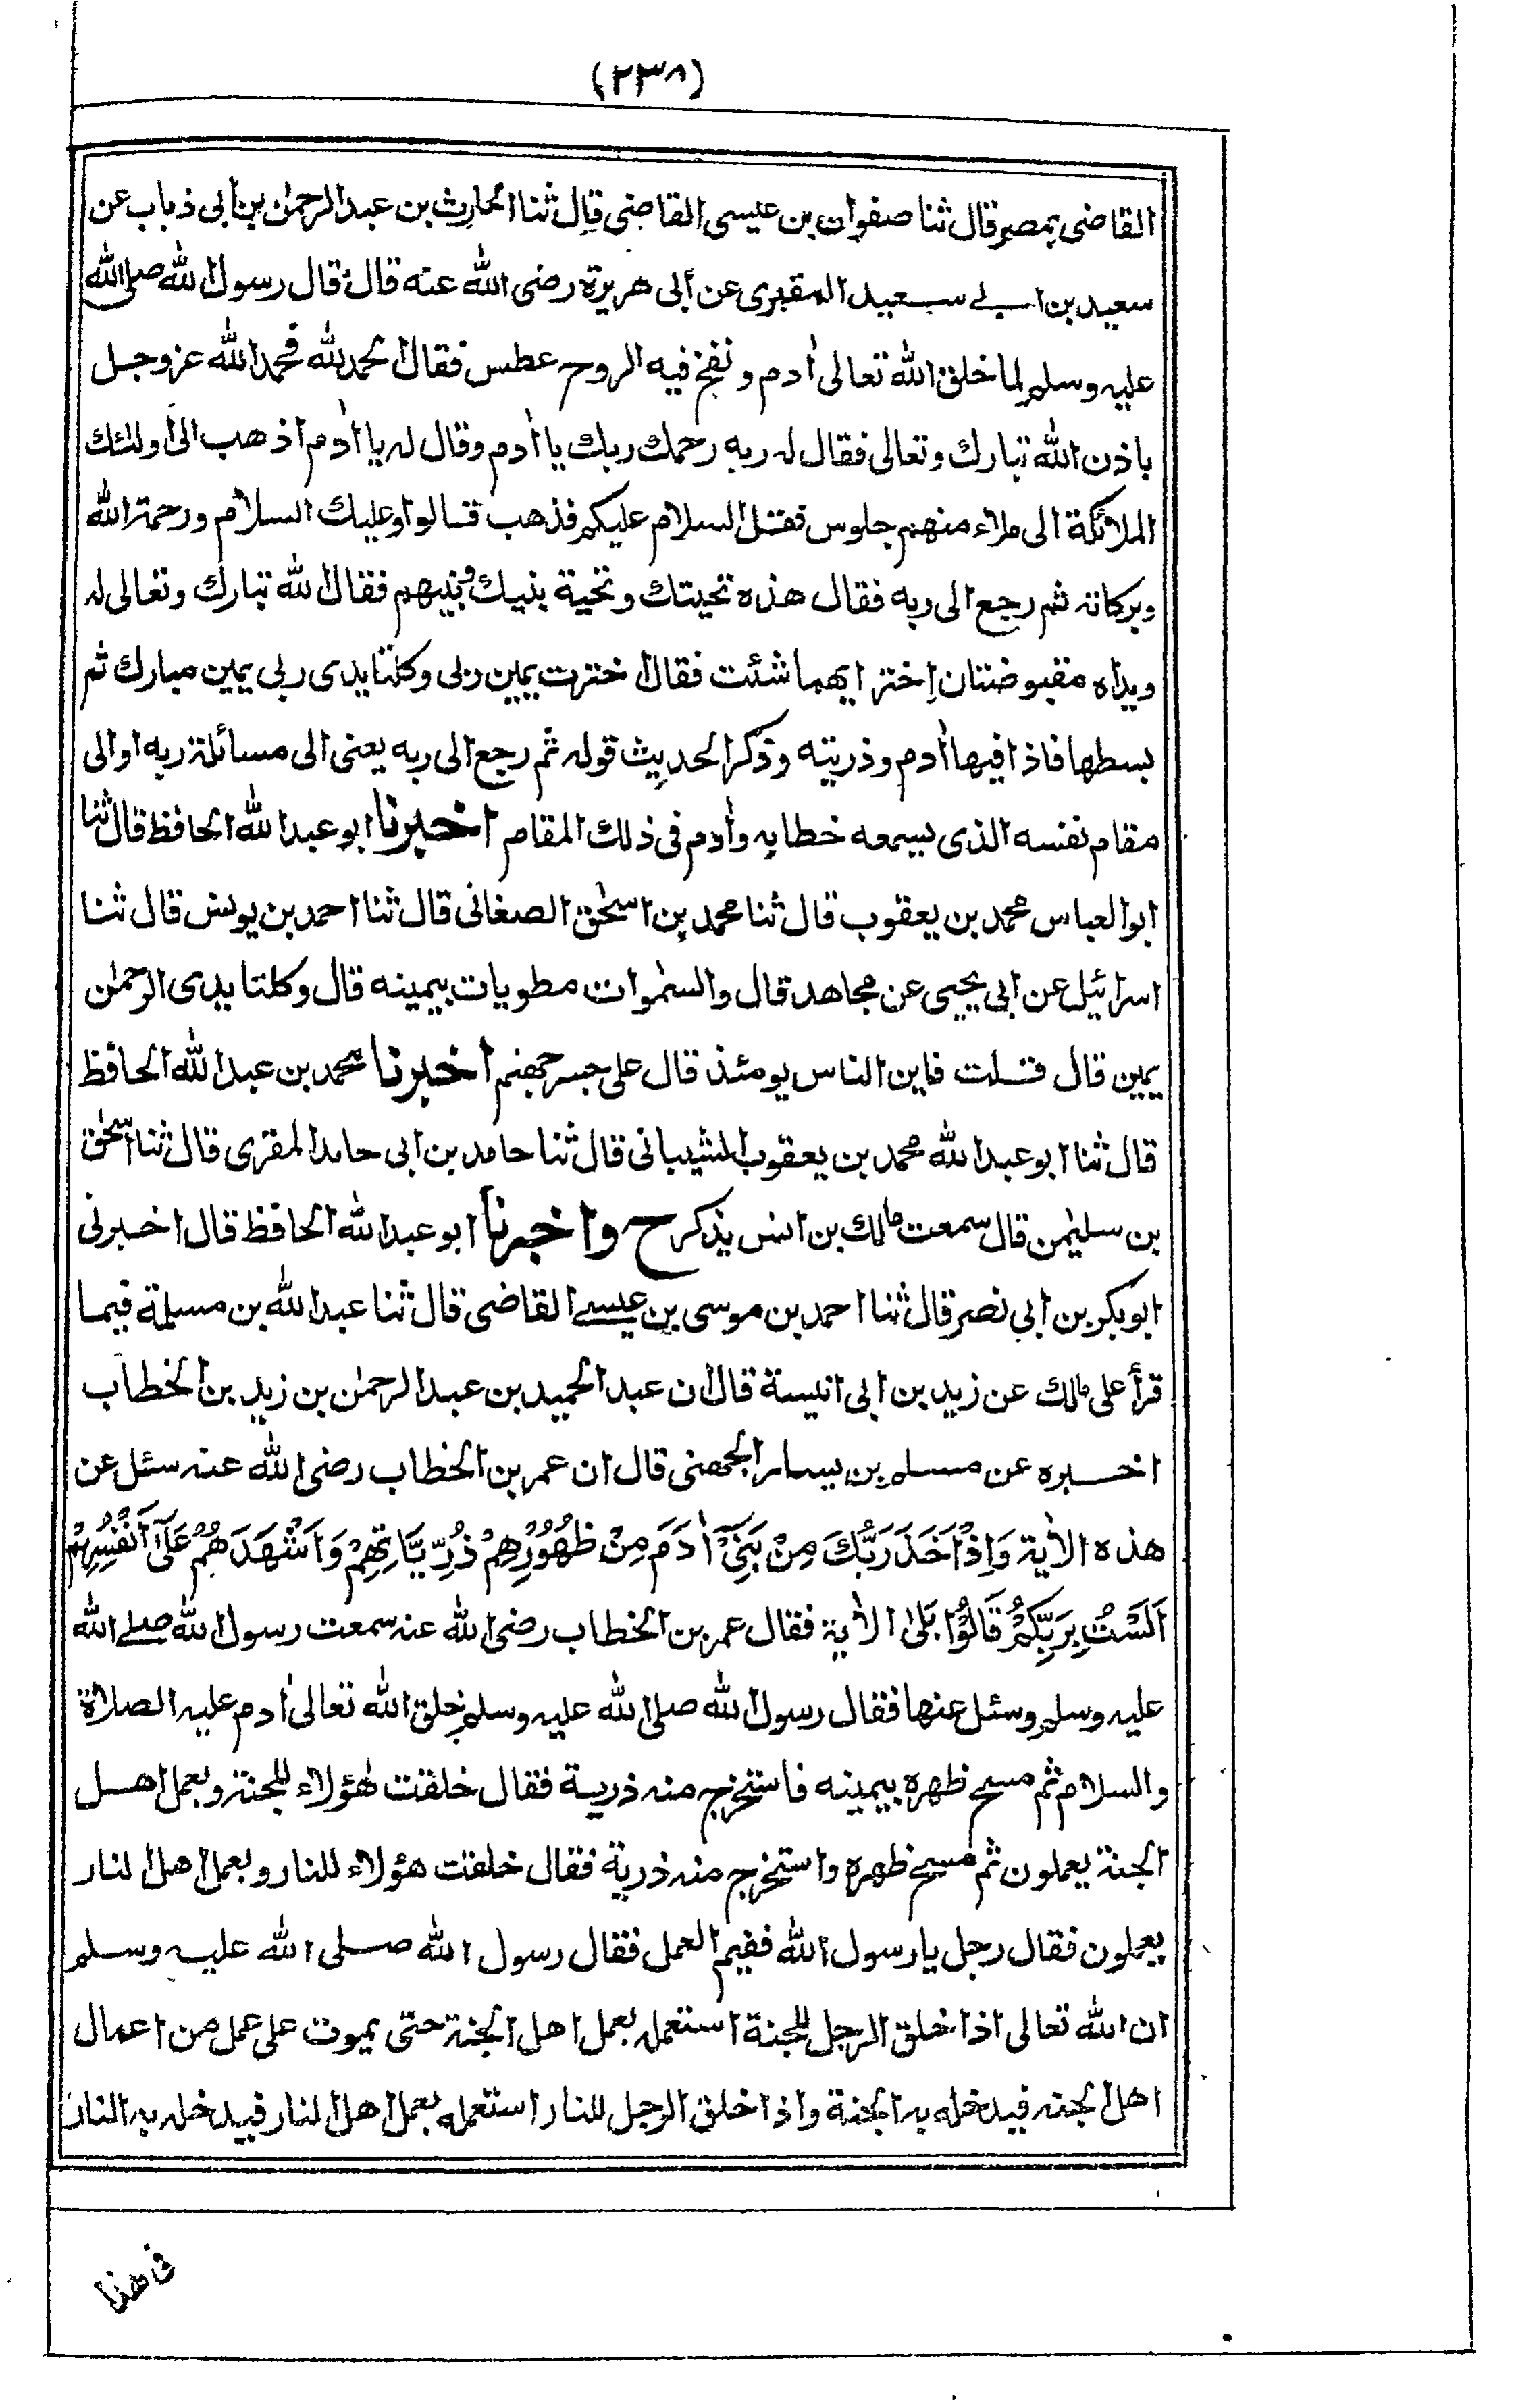 (٢٣٨)
القاضى بمصر قال ثنا صفوان بن عيسى القاضى قال ثنا الحارث بن عبد الرحمٰن بن ابى ذباب عن
سعيد بن ابى سعيد المقبرى عن أبى هريرة رضى الله عنه قال قال رسول الله صلى الله
عليه وسلم لما خلق الله تعالى اٰدم ونفخ فيه الروح عطس فقال الحمد لله فحمد الله عزوجل
باذن الله تبارك وتعالى فقال له ربه رحمك ربك يا اٰدم وقال له يا اٰدم اذهب الى اولئك
الملائكة الى ملاء منهم جلوس فقل السلام عليكم فذهب قالوا وعليك السلام ورحمة الله
وبركاته ثم رجع الى ربه فقال هذه تحيتك وتحية بنيك وبنيهم فقال الله تبارك وتعالى له
ويداه مقبوضتان اِختر ايهما شئت فقال اخترت يمين ربى وكلتا يدى ربى يمين مبارك ثم
بسطها فاذا فيها اٰدم وذريته وذكر الحديث قوله ثم رجع الى ربه يعنى الى مسائلة ربه او الى
مقام نفسه الذى يسمعه خطابه واٰدم فى ذلك المقام اخبرنا ابو عبد الله الحافظ قال ثنا
ابو العباس محمد بن يعقوب قال ثنا محمد بن اسحٰق الصغانى قال ثنا احمد بن يونس قال ثنا
اسرائيل عن ابى يحيى عن مجاهد قال والسمٰوات مطويات بيمينه قال وكلتا يدى الرحمٰن
يمين قال قلت فاين الناس يومئذ قال على جسر جهنم اخبرنا محمد بن عبد الله الحافظ
قال ثنا ابو عبد الله محمد بن يعقوب الشيبانى قال ثنا حامد بن ابى حامد المقرى قال ثنا اسحٰق
بن سليمٰن قال سمعت مالك بن انس يذكر ح واخبرنا ابو عبد الله الحافظ قال اخبرنى
ابو بكر بن ابى نصر قال ثنا احمد بن موسى بن عيسى القاضى قال ثنا عبد الله بن مسلمة فيما
قرأ على مالك عن زيد بن ابى انيسة قال ان عبد الحميد بن عبد الرحمٰن بن زيد بن الخطاب
اخبره عن مسلم بن يسار الجهنى قال ان عمر بن الخطاب رضى الله عنه سئل عن
هذه الاٰية وَاِذْ اَخَذَ رَبُّكَ مِنْ بَنِىْٓ اٰدَمَ مِنْ ظُهُوْرِهِمْ ذُرِّيَّاتِهِمْ وَاَشْهَدَهُمْ عَلٰٓى اَنْفُسِهِمْ
اَلَسْتُ بِرَبِّكُمْ قَالُوْا بَلٰى الاٰية فقال عمر بن الخطاب رضى الله عنه سمعت رسول الله صلى الله
عليه وسلم وسئل عنها فقال رسول الله صلى الله عليه وسلم خلق الله تعالى اٰدم عليه الصلاة
والسلام ثم مسح ظهره بيمينه فاستخرج منه ذرية فقال خلقت هٰؤلاء للجنة وبعمل اهل
الجنة يعملون ثم مسح ظهره واستخرج منه ذرية فقال خلقت هؤلاء للنار وبعمل اهل النار
يعملون فقال رجل يا رسول الله ففيم العمل فقال رسول الله صلى الله عليه وسلم
ان الله تعالى اذا خلق الرجل للجنة استعمله بعمل اهل الجنة حتى يموت على عمل من اعمال
اهل الجنة فيدخله به الجنة واذا خلق الرجل للنار استعمله بعمل اهل النار فيدخله به النار
فى هذا